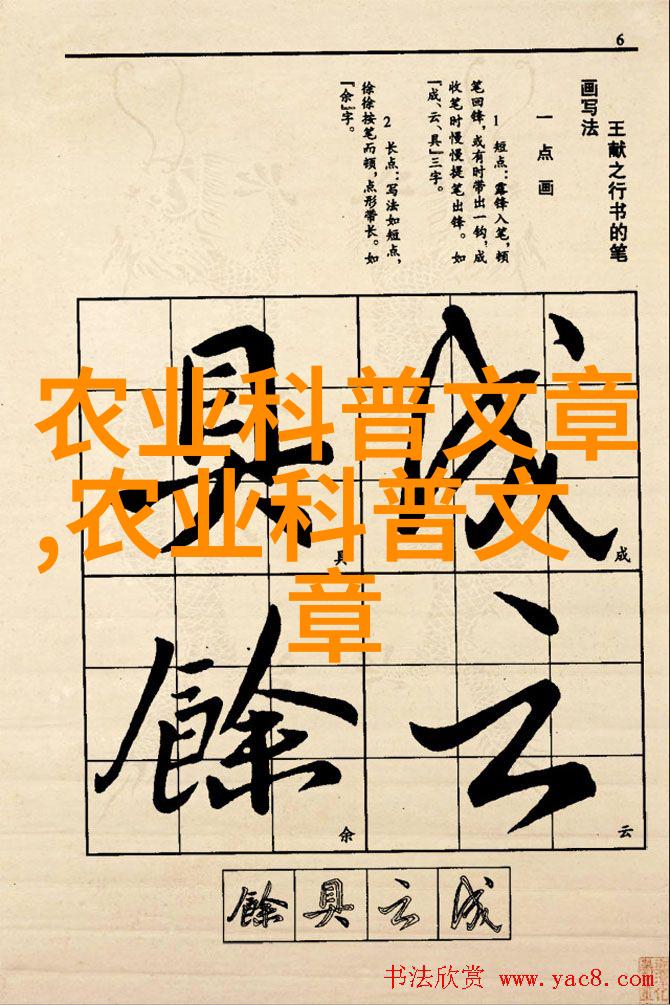 6
王献之行书的笔
画写法
一点画
1 短点:露锋入笔,顿
笔回锋,或有时带出一钩,成
收笔时慢慢提笔出锋。如
『成、云、具』三字。
2 长点:写法如短点,
徐徐按笔而顿,点形带长。如
『余』字。
农业科普文章
,农业科普文
章
成
成
云
云
具
具
餘
余
餘 具 云 成
书法欣赏 www.yac8.com